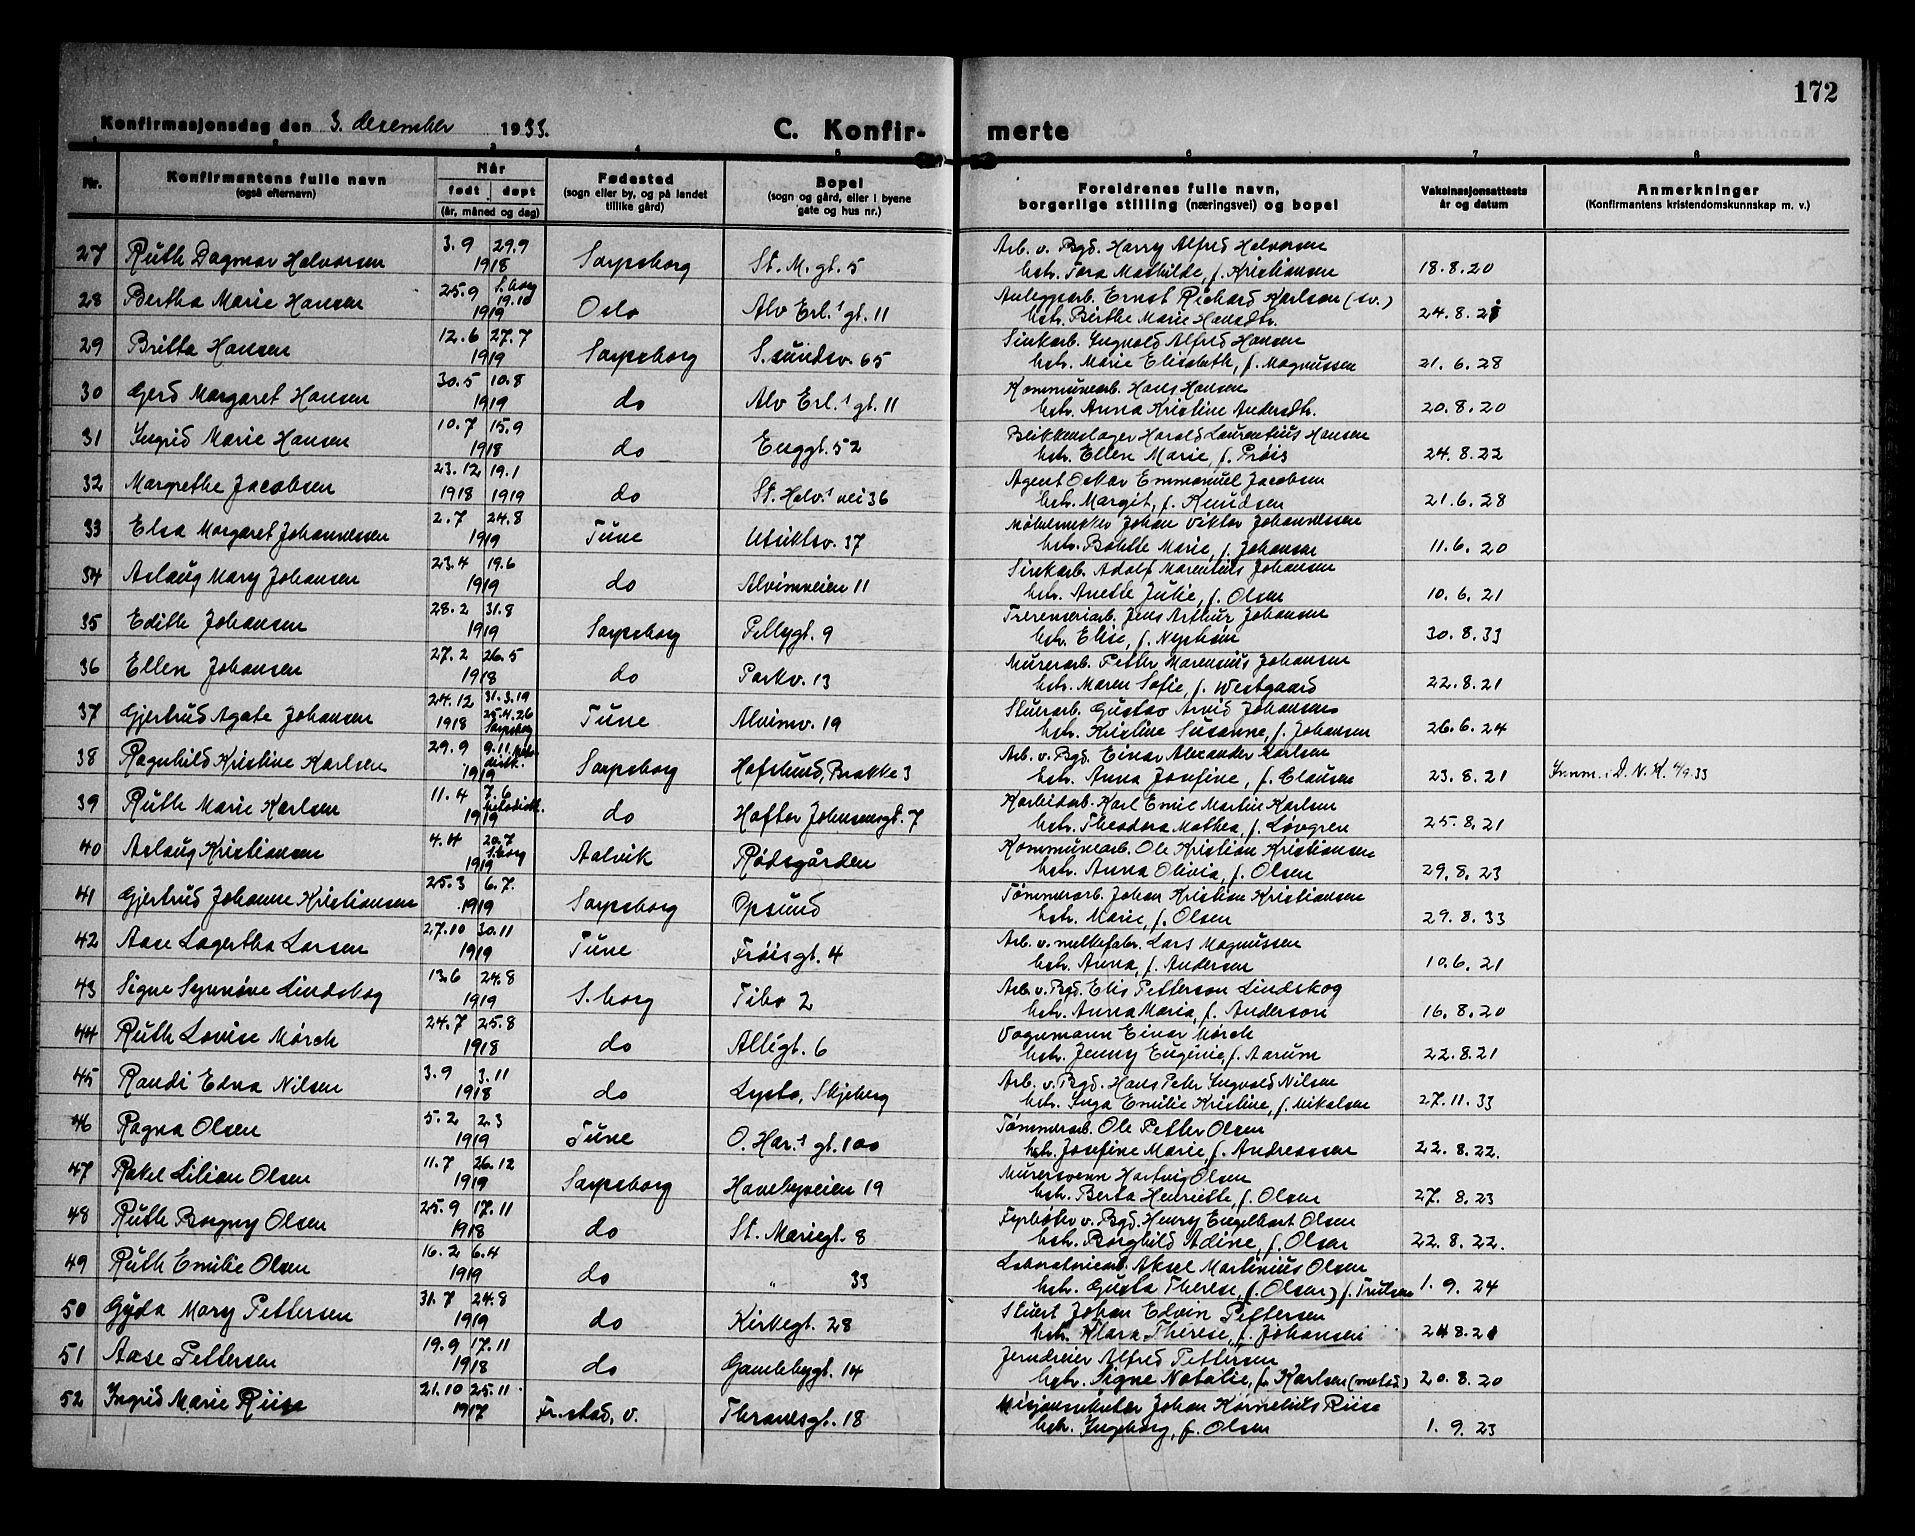 172
Konfirmasjonsdag den 3. desember 1933.
C. Konfir- merte
1 2 3 4 5 6 7 8
Nr.
Konfirmantens fulle navn
(også efternavn)
Når
født døpt
(år, måned og dag)
Fødested
(sogn eller by, og på landet
tillike gård)
Bopel
(sogn og gård, eller i byene
gate og hus nr.)
Foreldrenes fulle navn,
borgerlige stilling (næringsvei) og bopel
Vaksinasjonsattests
år og datum
Anmerkninger
(Konfirmantens kristendomskunnskap m. v.)
27 Ruth Dagmar Halvorsen 3.9 29.9 1918 Sarpsborg St. M. gt. 5
Arb. v. Bgd. Harry Alfred Halvorsen
hstr. Tora Mathilde, f. Kristiansen 18.8.20
28 Bertha Marie Hansen 25.9 S.borg 19.10 1919 Oslo Alv Erl.s gt. 11
Anleggsarb. Ernst Richard Karlsen (sv.)
hstr. Birthe Marie Hansdtr. 24.8.21
29 Britta Hansen 12.6 27.7 1919 Sarpsborg S.sundsv. 65
Sinkarb. Ingvald Alfred Hansen
hstr. Marie Elisabeth, f. Magnussen 21.6.28
30 Gerd Margaret Hansen 30.5 10.8 1919 do Alv Erl.s gt. 11
Kommunearb. Hans Hansen
hstr. Anna Kristine Andersdtr. 20.8.20
31 Ingrid Marie Hansen 10.7 15.9 1918 do Enggt. 52
Blikkenslager Harald Laurentius Hansen
hstr. Ellen Marie, f. Prøis 24.8.22
32 Margrethe Jacobsen 23.12 19.1 1918 1919 do St. Halv.s vei 36
Agent Oskar Emmanuel Jacobsen
hstr. Margit, f. Knudsen 21.6.28
33 Elsa Margaret Johannessen 2.7 24.8 1919 Tune Utsiktsv. 37
Møbelsnekker Johan Viktor Johannessen
hstr. Bolette Marie, f. Johansen 11.6.20
34 Aslaug Mary Johansen 23.4 19.6 1919 do Alvimveien 11
Sinkarb. Adolf Marentius Johansen
hstr. Anette Julie, f. Olsen 10.6.21
35 Edith Johansen 28.2 31.8 1919 Sarpsborg Pellygt. 9
Jens Arthur Johansen
hstr. Elise, f. Nyström 30.8.33
36 Ellen Johansen 27.2 26.5 1918 do Parkv. 13
Murerarb. Petter Marensius Johansen
hstr. Maren Sofie, f. Westgaard 22.8.21
37 Gjertrud Agate Johansen 24.12 31.3.19 1918 25.4.26 Sarpsborg Tune Alvimv. 19
Stuerarb. Gustav Arvid Johansen
hstr. Kristine Susanne, f. Johansen 26.6.24
38 Ragnhild Kristine Karlsen 29.9 9.11. 1919 Sarpsborg Hafslund, Brakke 3
Arb. v. Bgd. Einar Alexander Karlsen
hstr. Anna Josefine, f. Clausen 23.8.21 Innm. i D.N.K. 4/9.33
39 Ruth Marie Karlsen 11.4 7.6 metodistk. 1919 do Haftor Johnsensgt. 7
Karbidarb. Karl Emil Martin Karlsen
hstr. Theodora Mathea, f. Løvgren 25.8.21
40 Aslaug Kristiansen 4.4 20.7 S.borg 1919 Aalvik Rødsgården
Kommunearb. Ole Kristian Kristiansen
hstr. Anna Olivia, f. Olsen 29.8.23
41 Gjertrud Johanne Kristiansen 25.3 6.7. 1919 Sarpsborg Opsund
Tømmerarb. Johan Kristian Kristiansen
hstr. Marie, f. Olsen 29.8.33
42 Aase Lagertha Larsen 27.10 30.11 1919 Tune Frøisgt. 4
Arb. v. melkefabr. Lars Magnussen
hstr. Anna, f. Andersen 10.6.21
43 Signe Synnøve Lindskog 13.6 24.8 1919 S.borg Tibo 2
Arb. v. Bgd. Elis Petterson Lindskog
hstr. Anna Maria, f. Anderson 16.8.20
44 Ruth Lovise Mørch 24.7 25.8 1918 do Allégt. 6
Vognmann Einar Mørch
hstr. Jenny Eugénie, f. Aarum 22.8.21
45 Randi Edna Nilsen 3.9 3.11 1918 do Lysto, Skjeberg
Arb. v. Bgd. Hans Petr Ingvald Nilsen
hstr. Inga Emilie Kristine, f. Mikalsen 27.11.33
46 Ragna Olsen 5.2 2.3 1919 Tune O. Har.s gt. 100
Tømmerarb. Ole Petter Olsen
hstr. Josefine Marie, f. Andreassen 22.8.22.
47 Rakel Lilian Olsen 11.7 26.12 1919 Sarpsborg Havebyveien 19
Murersvenn Hartvig Olsen
hstr. Berta Henriette, f. Olsen 27.8.23
48 Ruth Borgny Olsen 25.9 17.11 1918 do St. Mariegt. 8
Fyrbøter v. Bgd. Henry Engelhart Olsen
hstr. Borghild Adine, f. Olsen 22.8.22.
49 Ruth Emilie Olsen 16.2 6.4 1919 do " 33
Laboratoriearb. Aksel Martinius Olsen
hstr. Gusta Therese, (f. Olsen) f. Trulsen 1.9.24
50 Gyda Mary Pettersen 31.7 24.8 1919 do Kirkegt. 28
Stuert Johan Edvin Pettersen
hstr. Klara Therese, f. Johansen 24.8.21
51 Aase Pettersen 19.9 17.11 1918 do Gamlebygt. 14
Jerndreier Alfred Pettersen
hstr. Signe Natalie, f. Karlsen (metod.) 20.8.20
52 Ingrid Marie Riise 21.10 25.11. 1917 Fr.stad, v. Thranesgt. 18
Misjonsarbeider Johan Kornelius Riise
hstr. Ingeborg, f. Olsen 1.9.23